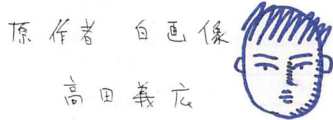 原作者 自画像
高田義広